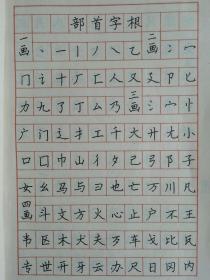 部首字根
一画 丶 一 丨 丿 ㇏ 乙 二画 冫 冖
冂 讠 十 厂 匚 人 又 廴 卩 匕
力 九 了 丁 厶 乃 三画 宀 忄
广 门 辶 士 工 千 大 廾 尢 小
口 囗 巾 山 彳 夕 己 弓 阝 子
女 幺 马 与 彐 也 亡 万 川 凡
四画 斗 文 方 火 心 止 户 不 王
韦 匚 木 犬 夫 歹 车 戈 比 瓦
专 世 开 牙 云 办 尺 日 冈 内